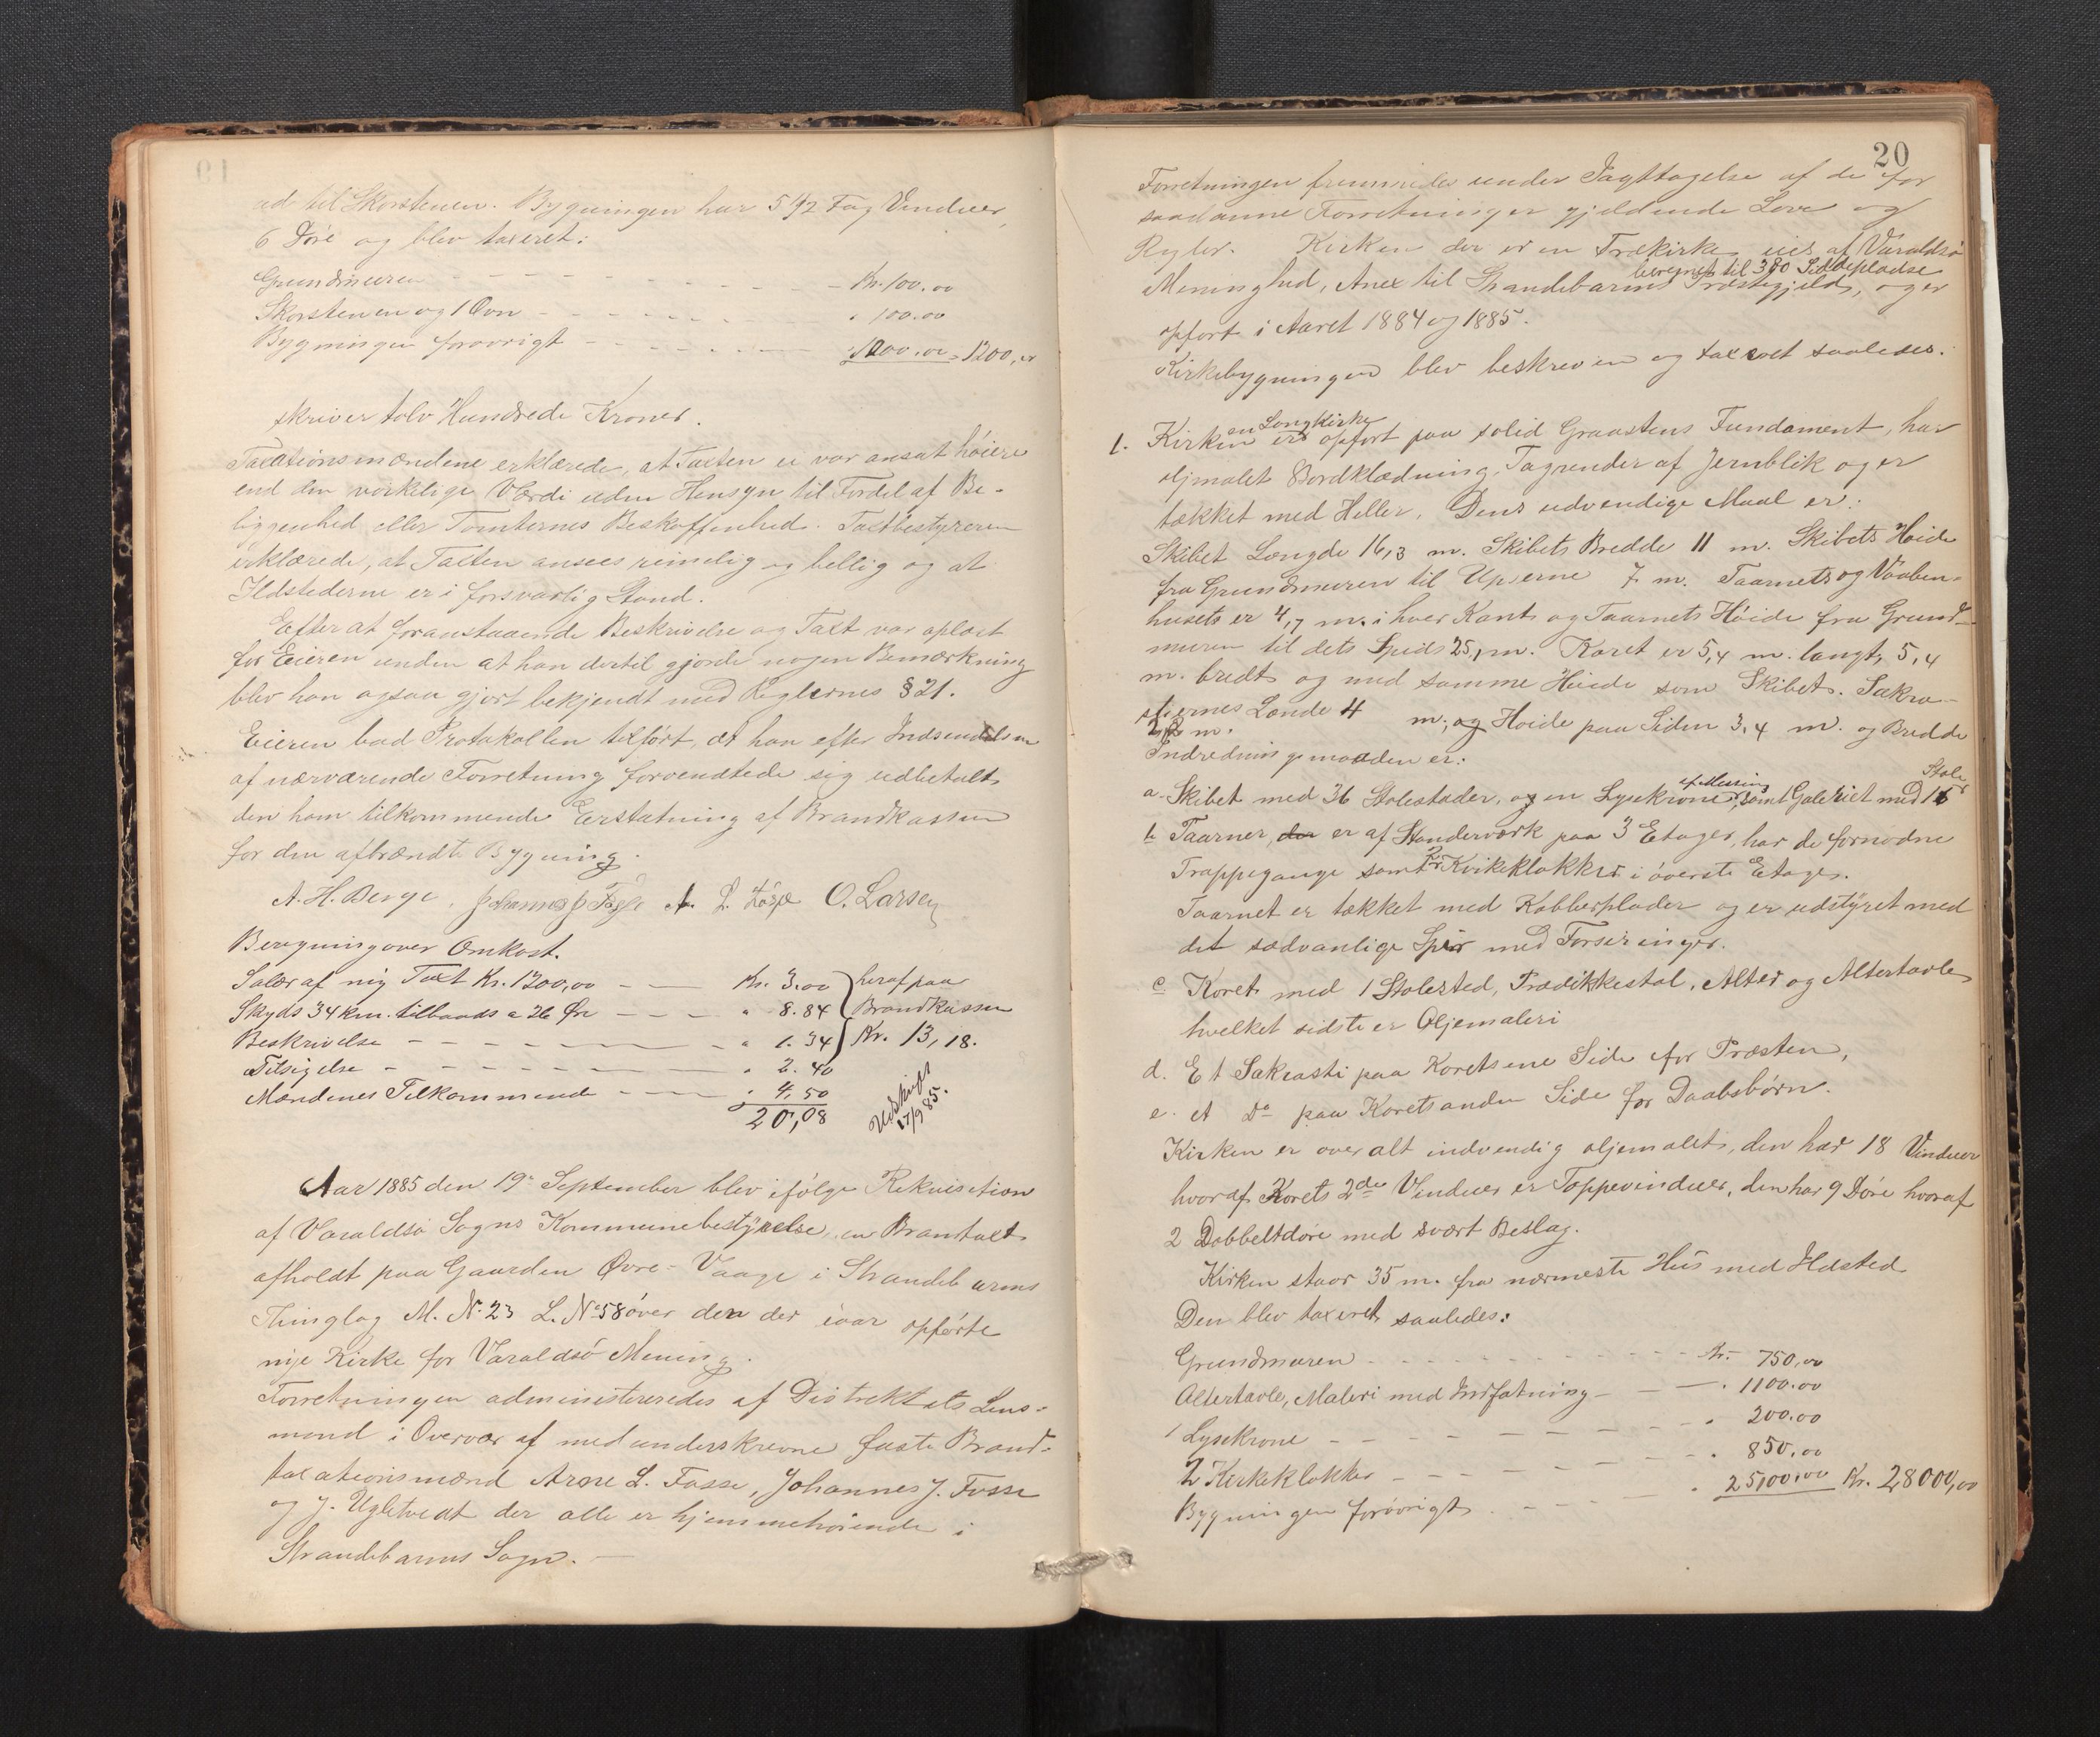 ud til Skorstenen. Bygningen har 5 1/2 Fag Vinduer,
6 Döre og blev taxeret:
Grundmuren Kr. 100.00
Skorstenen og 1 Ovn " 100.00
Bygningen forövrigt 1000.00 = 1200,00
skriver tolv Hundrede Kroner.
Taxationsmændene erklærede, at Taxten ei var ansat höiere
end den virkelige Værdi uden Hensyn til Fordel af Be-
liggenhed eller Tomternes Beskaffenhed. Taxtbestyreren
erklærede, at Taxten ansees rimelig og billig og at
Ildstederne er i forsvarlig Stand.
Efter at foranstaaende Beskrivelse og Taxt var oplæst
for Eieren uden at han dertil gjorde nogen Bemærkning
blev han ogsaa gjort bekjendt med Reglernes § 21.
Eieren bad Protokollen tilfört, at han efter Indsendelsen
af nærværende Forretning forventede sig udbetalt
den ham tilkommende Erstatning af Brandkassen
for den afbrændte Bygning.
A. H. Berge. Johannes J Fosse A. L. Fosse O. Larsen
Beregning over Omkost.
Salær af mig Taxt Kr. 1200,00 Kr. 3.00 heraf paa
Skyds 34 km. tilbaads a 26 Öre " 8.84 Brandkassen
Beskrivelse " 1.34 Kr. 13,18.
Tilsigelse " 2.40
Mændenes Tilkommende " 4,50
20,08
Udskrift
17/9 85.
Aar 1885 den 19de September blev ifölge Rekvisition
af Varaldsö Sogns Kommunebestyrelse en Brantaxt
afholdt paa Gaarden Övre-Vaage i Strandebarms
Thinglag M. No 23 L. No 58 över den der iaar opförte
nye Kirke for Varaldsö Menig.
Forretningen administreredes af Distriktets Lens-
mand i Overvær af medunderskrevne faste Brand-
taxationsmænd Arne L. Fosse, Johannes J. Fosse
og J. Ugletveit der alle er hjemmehörende i
Strandebarms Sogn.
20
Forretningen fremmedes under Iagttagelse af de for
saadanne Forretninger gjeldende Love og
Regler. Kirken der er en Trækirke eies af Varaldsö
beregnet til 380 Siddepladse
Menighed, Anex til Strandebarms Præstegjeld, og er
opfört i Aaret 1884 og 1885.
Kirkebygningen blev beskreven og taxeret saaledes.
en Langkirke
1. Kirken er opfört paa solid Graastens Fundament, har
oljmalet Bordklædning, Tagrender af Jernblik og er
tækket med Heller. Dens udvendige Maal er:
Skibet Længde 16,3 m. Skibets Bredde 11 m. Skibets Höide
fra Grundmuren til Uperne 7 m. Taarnets og Vaaben-
husets er 4,7 m. i hver Kant og Taarnets Höide fra Grund-
muren til dets Spids 25,1 m. Koret er 5,4 m. langt, 5,4
m. bredt og med samme Höide som Skibet. Sakra-
stiernes Længde 4 m, og Höide paa Siden 3,4 m. og Bredde
m.
Indredningsmaaden er:
af Messing Stole
a. Skibet med 36 Stolestader, og en Lysekrone, samt Galeriet med 15
b Taarnet, der er af Standerværk paa 3 Etager, har de fornödne
Trappegange samt 2 Kirkeklokker i överste Etage.
Taarnet er tækket med Kobberplader og er udstyret med
det sædvanlige Spir med Forseringer.
c. Koret med 1 Stolested, Prædikkestol, Alter og Altertavle
hvilket sidste er Oljemaleri
d. Et Sakrasti paa Korets ene Side for Præsten,
e. et Do paa Korets anden Side for Daabsbörn.
Kirken er overalt indvendig oljemalet, den har 18 Vinduer
hvoraf Korets 2de Vinduer er Toppevinduer, den har 9 Döre hvoraf
2 Dobbeltdöre med svært Beslag.
Kirken staar 35 m. fra nærmeste Hus med Ildsted
Den blev taxeret saaledes:
Grundmuren Kr. 750,00
Altertavle, Maleri med Indfatning " 1100.00
1 Lysekrone " 200.00
2 Kirkeklokker " 850,00
Bygningen forövrigt " 25100,00 Kr. 28000,00